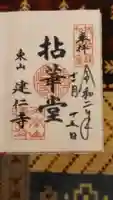 奉拝
令和二年
十一月十五日
拈華堂
東山
建仁寺